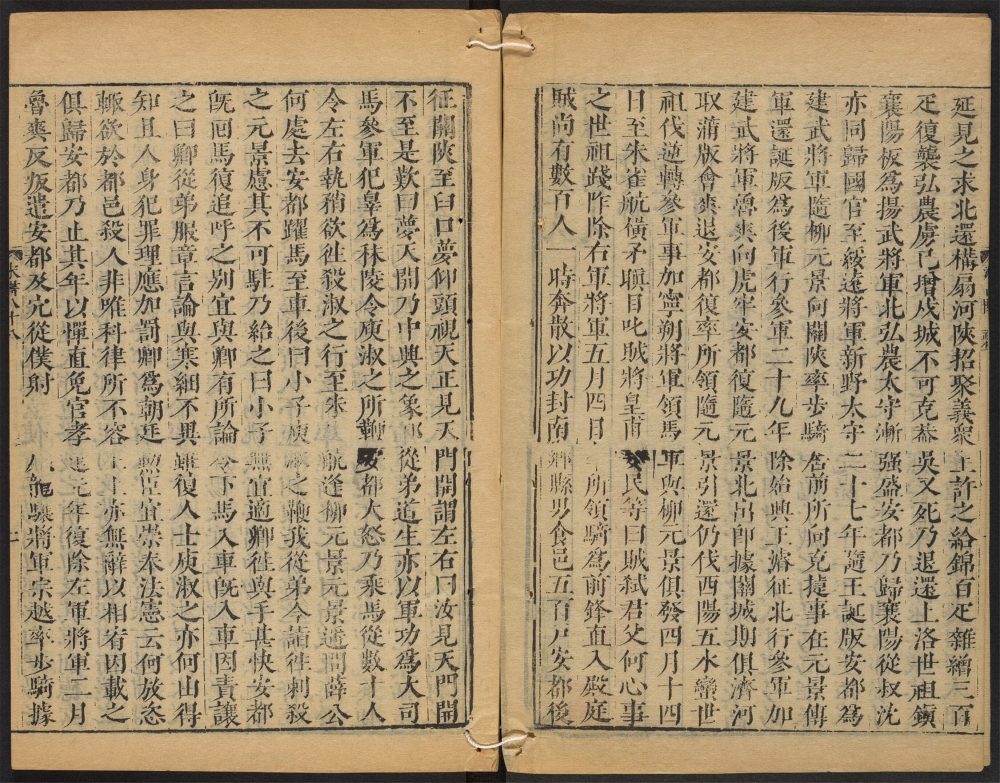 延見之求北還構扇河陝招聚義衆上許之給錦百疋雜繒三百
疋復襲弘農虜已增戍城不可克葢吳又死乃退還上洛世祖鎭
襄陽板爲揚武將軍北弘農太守漸强盛安都乃歸襄陽從叔沈
亦同歸國官至綏遠將軍新野太守二十七年隨王誕版安都爲
建武將軍隨柳元景向關陝率步騎居前所向克捷事在元景傳
軍還誕版爲後軍行參軍二十九年除始興王濬征北行參軍加
建武將軍魯爽向虎牢安都復隨元景北出卽據關城期俱濟河
取蒲版會爽退安都復率所領隨元景引還仍伐西陽五水蠻世
祖伐逆轉參軍事加寧朔將軍領馬軍與柳元景俱發四月十四
日至朱雀航橫矛瞋目叱賊將皇甫安民等曰賊弒君父何心事
之世祖踐阼除右軍將軍五月四日率所領騎爲前鋒直入殿庭
賊尚有數百人一時奔散以功封南鄉縣男食邑五百戶安都後
征關陝至臼口夢仰頭視天正見天門開謂左右曰汝見天門開
不至是歎曰夢天開乃中興之象邪從弟道生亦以軍功爲大司
馬參軍犯辠爲秣陵令庾淑之所鞭安都大怒乃乘馬從數十人
令左右執矟欲往殺淑之行至朱航逢柳元景元景遙問薛公
何處去安都躍馬至車後曰小子庾淑之鞭我從弟今詣往刺殺
之元景慮其不可駐乃紿之曰小子無宜適卿往與手甚快安都
旣回馬復追呼之別宜與卿有所論令下馬入車旣入車因責讓
之曰卿從弟服章言論與寒細不異雖復人士庾淑之亦何由得
知且人身犯罪理應加罰卿爲朝廷勳臣宜崇奉法憲云何放恣
輒欲於都邑殺人非唯科律所不容主上亦無辭以相宥因載之
俱歸安都乃止其年以憚直免官孝建元年復除左軍將軍二月
魯爽反叛遣安都及冗從僕射龍驤將軍宗越率步騎據